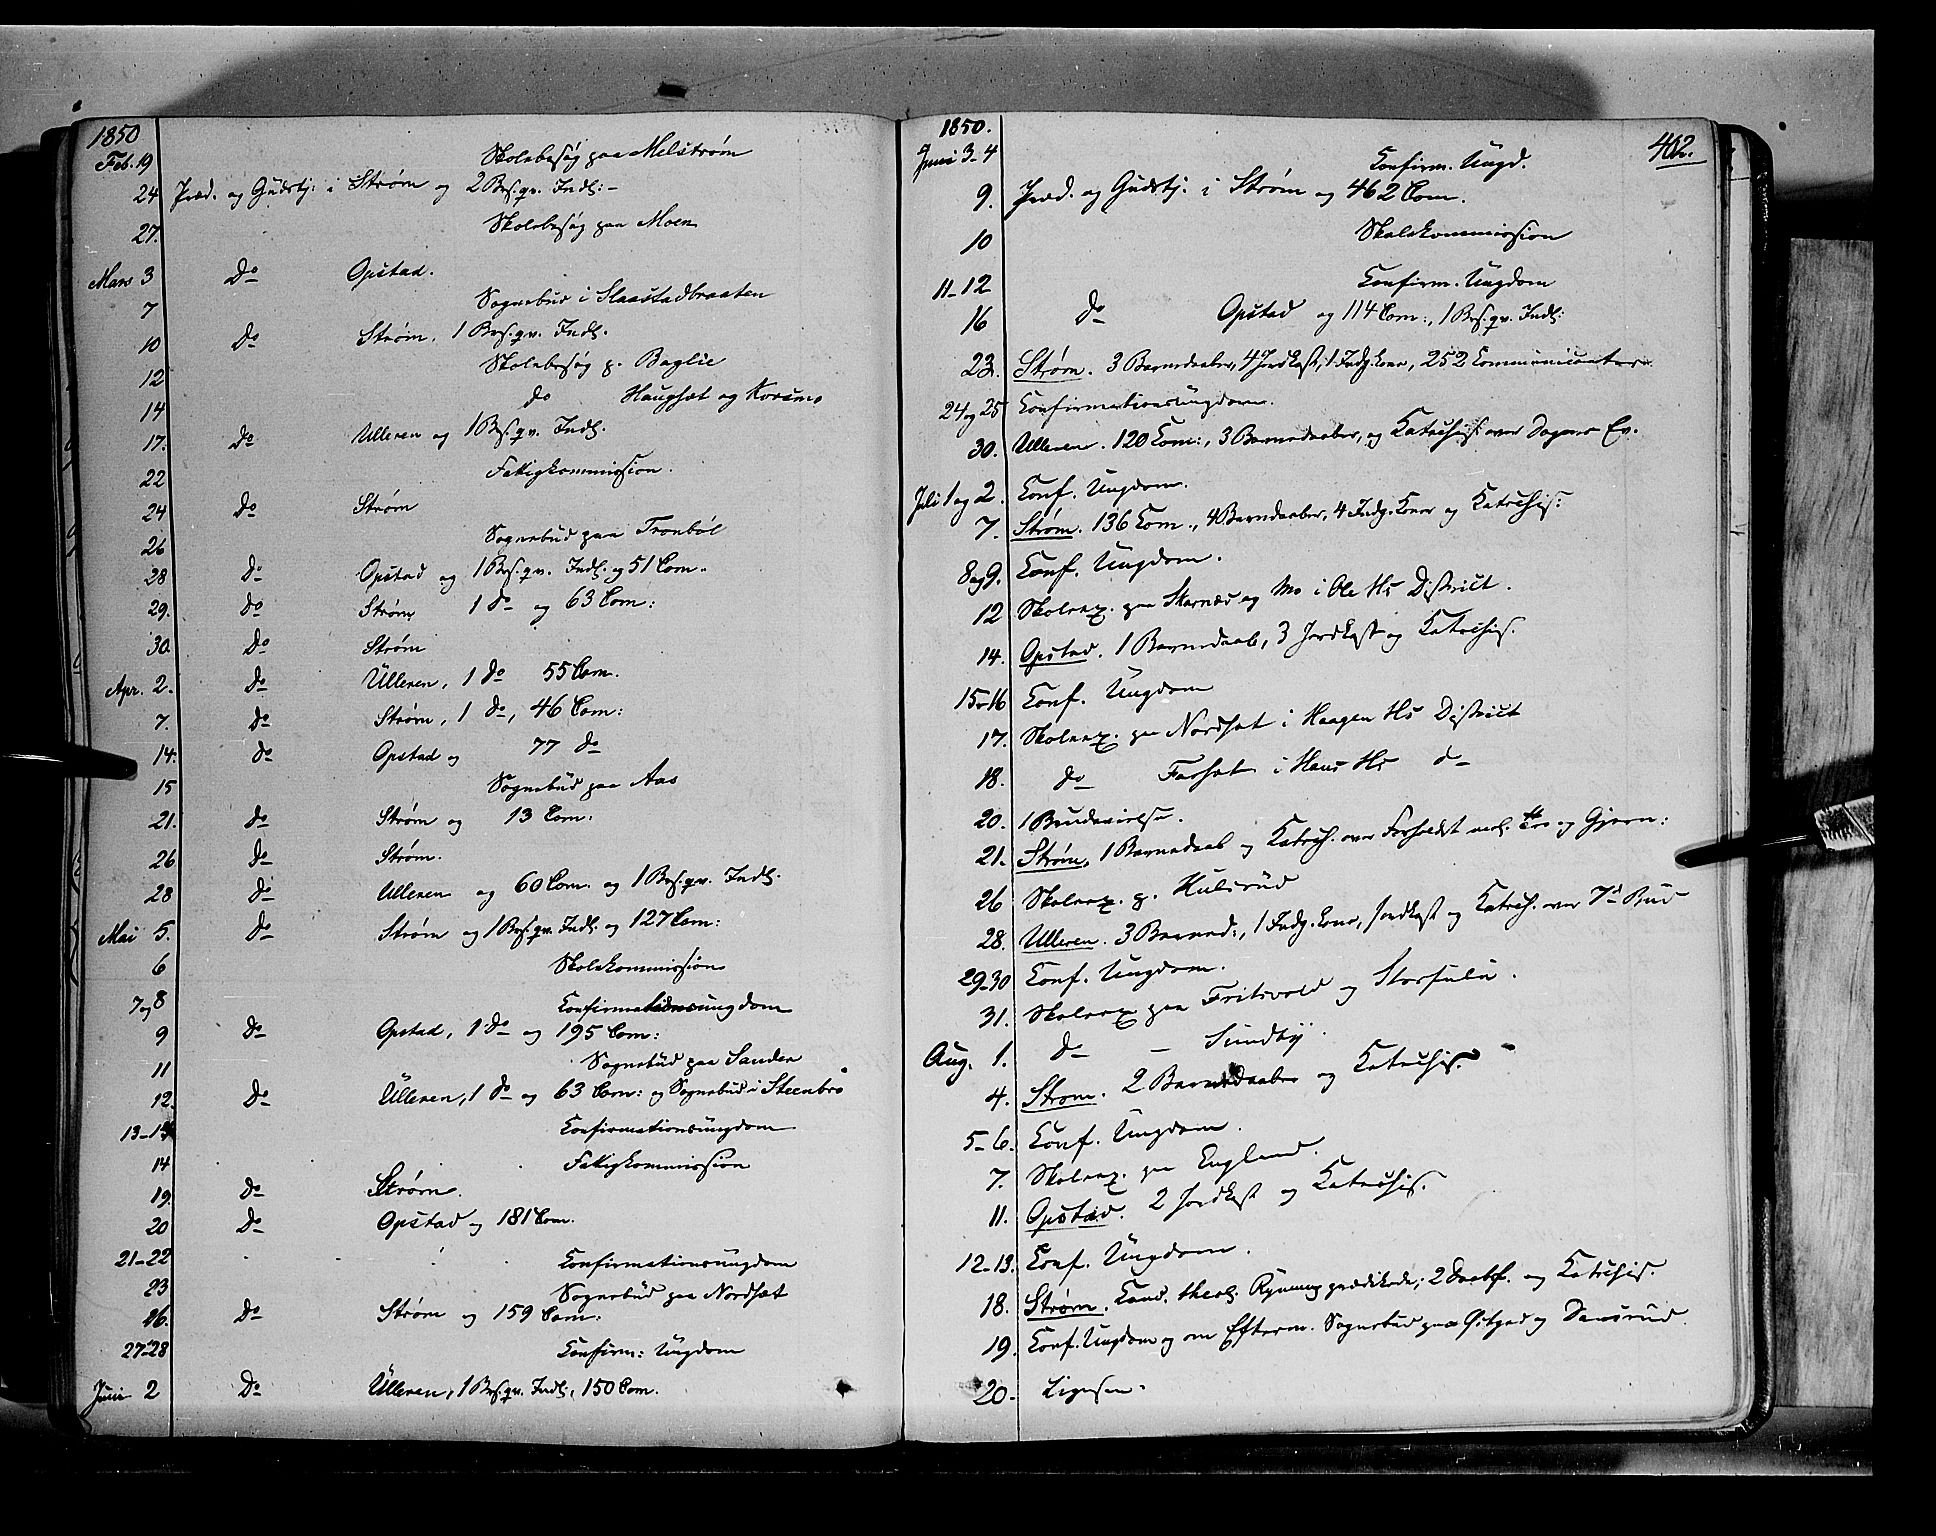 1850
Feb. 19 Skolebesøg paa Melstrøm
24 Præd. og Gudstj. i Strøm og 2 Brs.qv. Indl:
27. Skolebesøg paa Moen
Mars 3 Do Opstad.
7 Sognebud i Slaastadbraaten
10 Do Strøm, 1 Brs.qv. Indl.
12 Skolebesøg p. Baglie
14 do Haugsæt og Korsmo
17. Do Ulleren og 1 Brs.qv. Indl.
22 Fattigkommission.
24 Do Strøm
26 Sognebud paa Tronbøl
28 Do Opstad og 1 Brs.qv. Indl. og 51 Com.
29. Do Strøm 1 do og 63 Com:
30. Do Strøm
Apr. 2. Do Ulleren, 1 do 55 Com.
7. Do Strøm, 1 do, 46 Com:
14. do Opstad og 77 do
15 Sognebud paa Aas
21. do Strøm og 13 Com:
26 do Strøm.
28 do Ulleren og 60 Com. og 1 Brs.qv. Indl.
Mai 5. do Strøm og 1 Brs.qv. Indl. og 127 Com:
6 Skolekommission
7 og 8 Confirmationsungdom
9 Do Opstad, 1 do og 195 Com:
11 Sognebud paa Sander
12. Do Ulleren, 1 do og 63 Com: og Sognebud i Steenbro
13-14 Confirmationsungdom
14 Fattigkommission
19. Do Strøm.
20 Do Opstad og 181 Com.
21-22 Confirmationsungdom
23 Sognebud paa Nordsæt
26. Do Strøm og 159 Com:
27-28 Confirm: Ungdom
Juni 2 Do Ulleren, 1 Brs.qv. Indl., 150 Com.
1850. 402.
Juni 3-4 Confirm. Ungd.
9. Præd. og Gudstj. i Strøm og 462 Com.
10 Skolekommission
11-12 Confirm. Ungdom
16 do Opstad og 114 Com:, 1 Brs.qv. Indl:
23. Strøm. 3 Barnedaaber, 4 Jordkast, 1 Indg. Kone, 252 Communicanter
24 og 25 Confirmationsungdom.
30. Ulleren. 120 Com:, 3 Barnedaaber, og Katechis. over Dagens Ev.
Juli 1 og 2. Conf. Ungdom.
7. Strøm. 136 Com., 4 Barnedaaber, 4 Indg. Koner og Katechis.
8 og 9. Conf. Ungdom.
12 Skoleex. paa Skarnæs og Mo i Ole Hs District.
14. Opstad. 1 Barnedaab, 3 Jordkast og Katechis.
15-16 Conf. Ungdom
17. Skoleex. paa Nordsæt i Haagen Hs District
18. do Forsæt i Hans Hs do
20. 1 Brudevielse.
21. Strøm, 1 Barnedaab og Katech. over Forholdet mel. Tro og Gjern:
26 Skoleex. p. Hulsrud
28. Ulleren. 3 Barned:, 1 Indg. Kone, Jordkast og Katech. over 7de Bud
29-30 Conf. Ungdom.
31. Skoleex paa Fritsvold og Storsulu.
Aug. 1. do - Sundby.
4. Strøm. 2 Barnedaaber og Katechis.
5-6. Conf. Ungdom.
7. Skoleex. paa England.
11. Opstad. 2 Jordkast og Katechis.
12-13. Conf. Ungdom.
18. Strøm. Cand. theol. Rynning prædikede; 2 Daabsf. og Katechis.
19. Conf. Ungdom og om Efterm. Sognebud paa og
20.